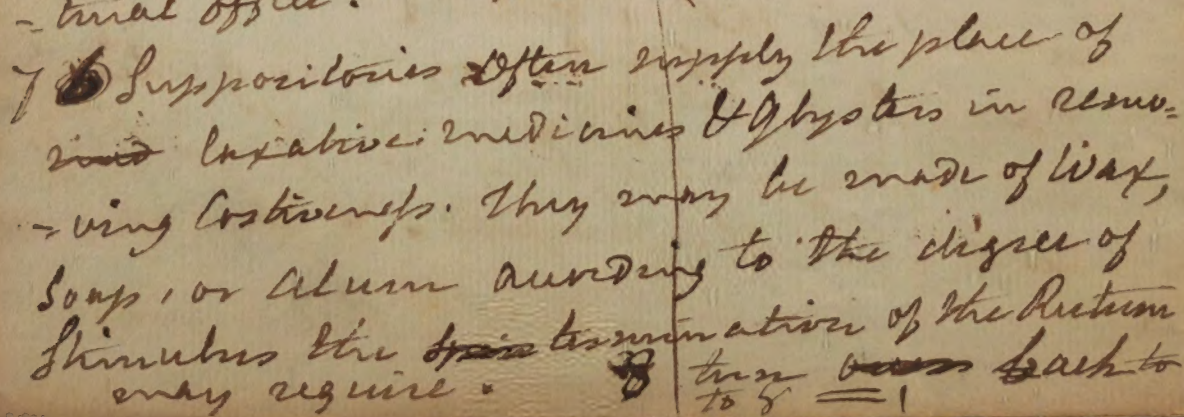 -tural office.
7 Suppositories often supply the place of
laxative medicines & Glysters in remo-
-ving Costiveness. They may be made of Wax,
Soap, or Alum according to the degree of
Stimulus the termination of the Rectum
may require. turn over back to
to 8